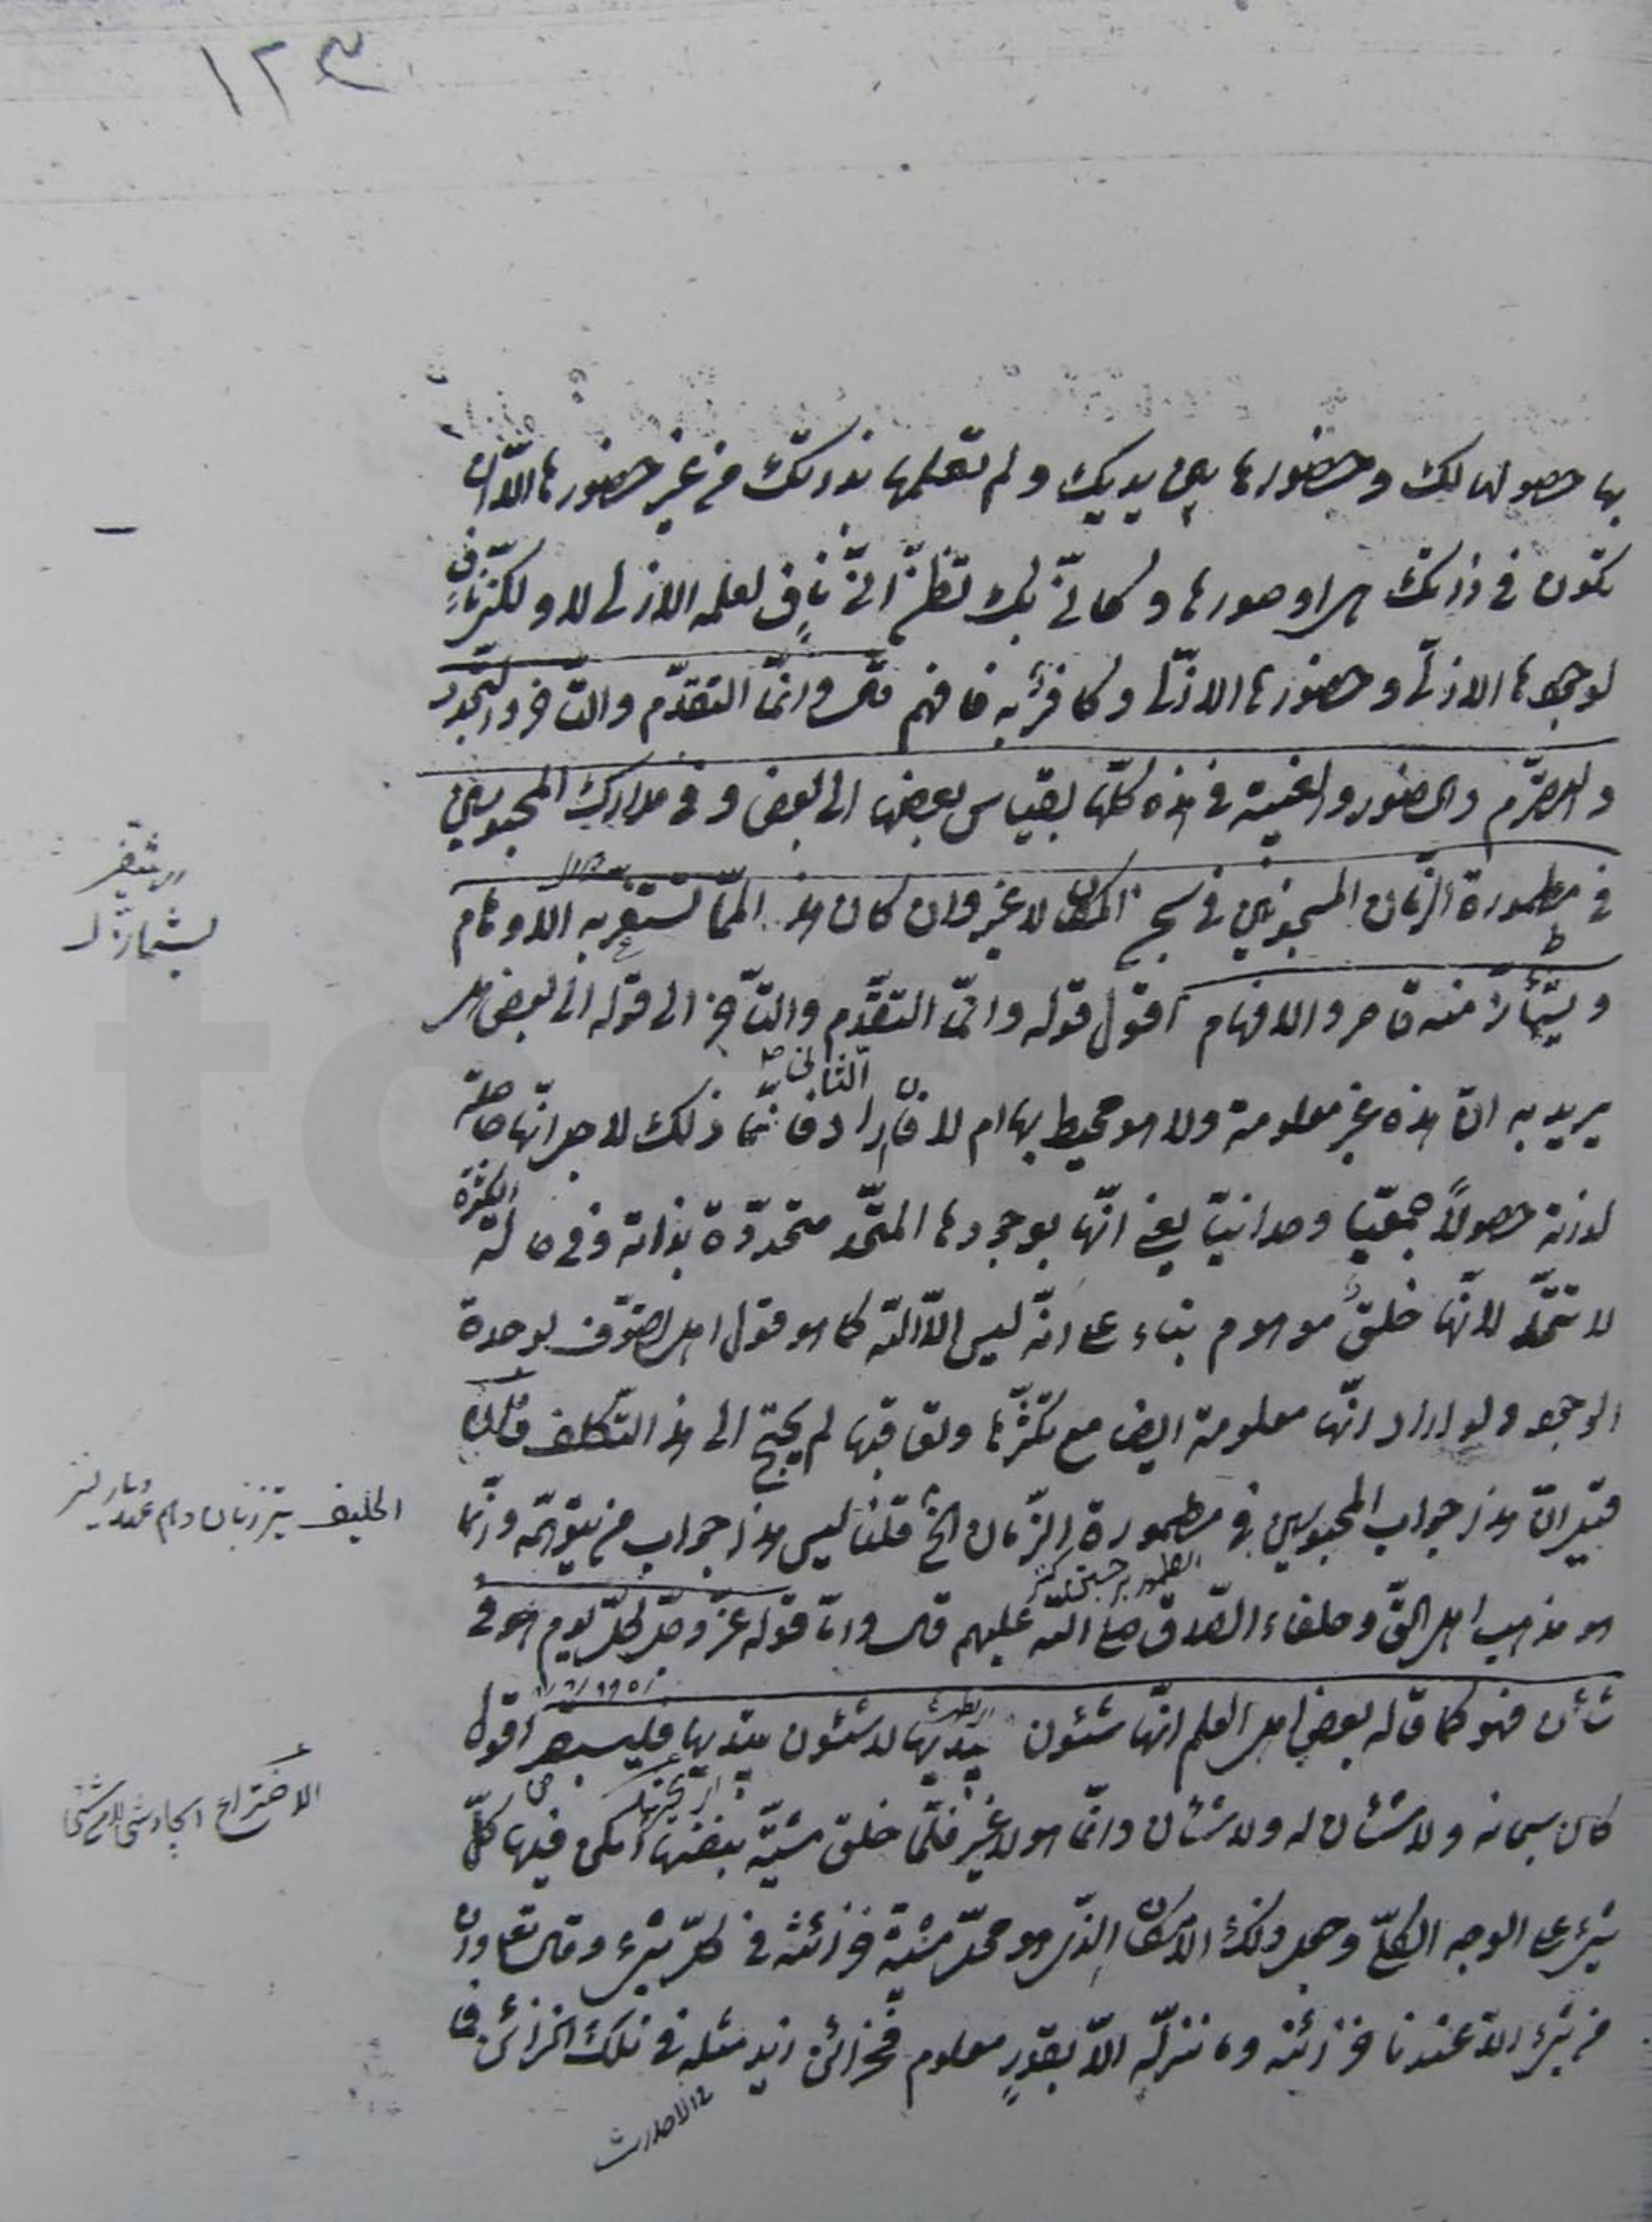 ١٢٣
بها حصولها لك وحضورها بين يديك ولم تعلمها بذاتك من غير حضورها الا ان
تكون في ذاتك هي او صورها وكأني بك تظن اني نافٍ لعلمه الازلي لا ولكني نافٍ
لوجودها الازلي وحضورها الازلي وكافر به فافهم قال وانما التقدم والتأخر والتجدد
والتصرم والحضور والغيبة في هذه كلها بقياس بعضها الى بعض وفي مدارك المحبوسين
في مطمورة الزمان المسجونين في سجن المكان لا غير وان كان هذا لمما تستغربه الاوهام
ويشمأز منه قاصروا الافهام اقول قوله وانما التقدم والتأخر الى قوله الى بعض هل
يريد به ان هذه غير معلومة ولا هو محيط بها ام لا فان اراد الثاني فانما ذلك لاجل انها حاصلة
لذاته حصولاً جمعيّا وحدانيّا يعني انها بوجودها المتحد متحدة بذاته وفي حالة الكثرة
لا تتحد لانها خلق موهوم بناء على انه ليس الا الله كما هو قول اهل التصوف بوحدة
الوجود ولو اراد انها معلومة ايضا مع تكثرها وتعاقبها لم يحتج الى هذا التكلف فان
قيل ان هذا جواب المحبوسين في مطمورة الزمان الخ قلنا ليس هذا جواب من يتوهم وانما
هو مذهب اهل الحق وخلفاء الصادق صلى الله عليهم قال واما قوله عز وجل كل يوم هو في
شأن فهو كما قاله بعض اهل العلم انها شئون يبديها لا شئون يبتديها فليبصر اقول
كان سبحانه ولا شأن له ولا شأن وانما هو لا غير فلما خلق مشيته بنفسها امكن فيها كل
شيء على الوجه الكلي وجعل ذلك الامكان الذي هو محل مشيته خزائنه في كل شيء وقال تعالى وان
من شيء الا عندنا خزائنه وما ننزله الا بقدرٍ معلوم فخزائن زيد مثله في تلك الخزائن
الاختراع ايجاد شيء لا من شيء